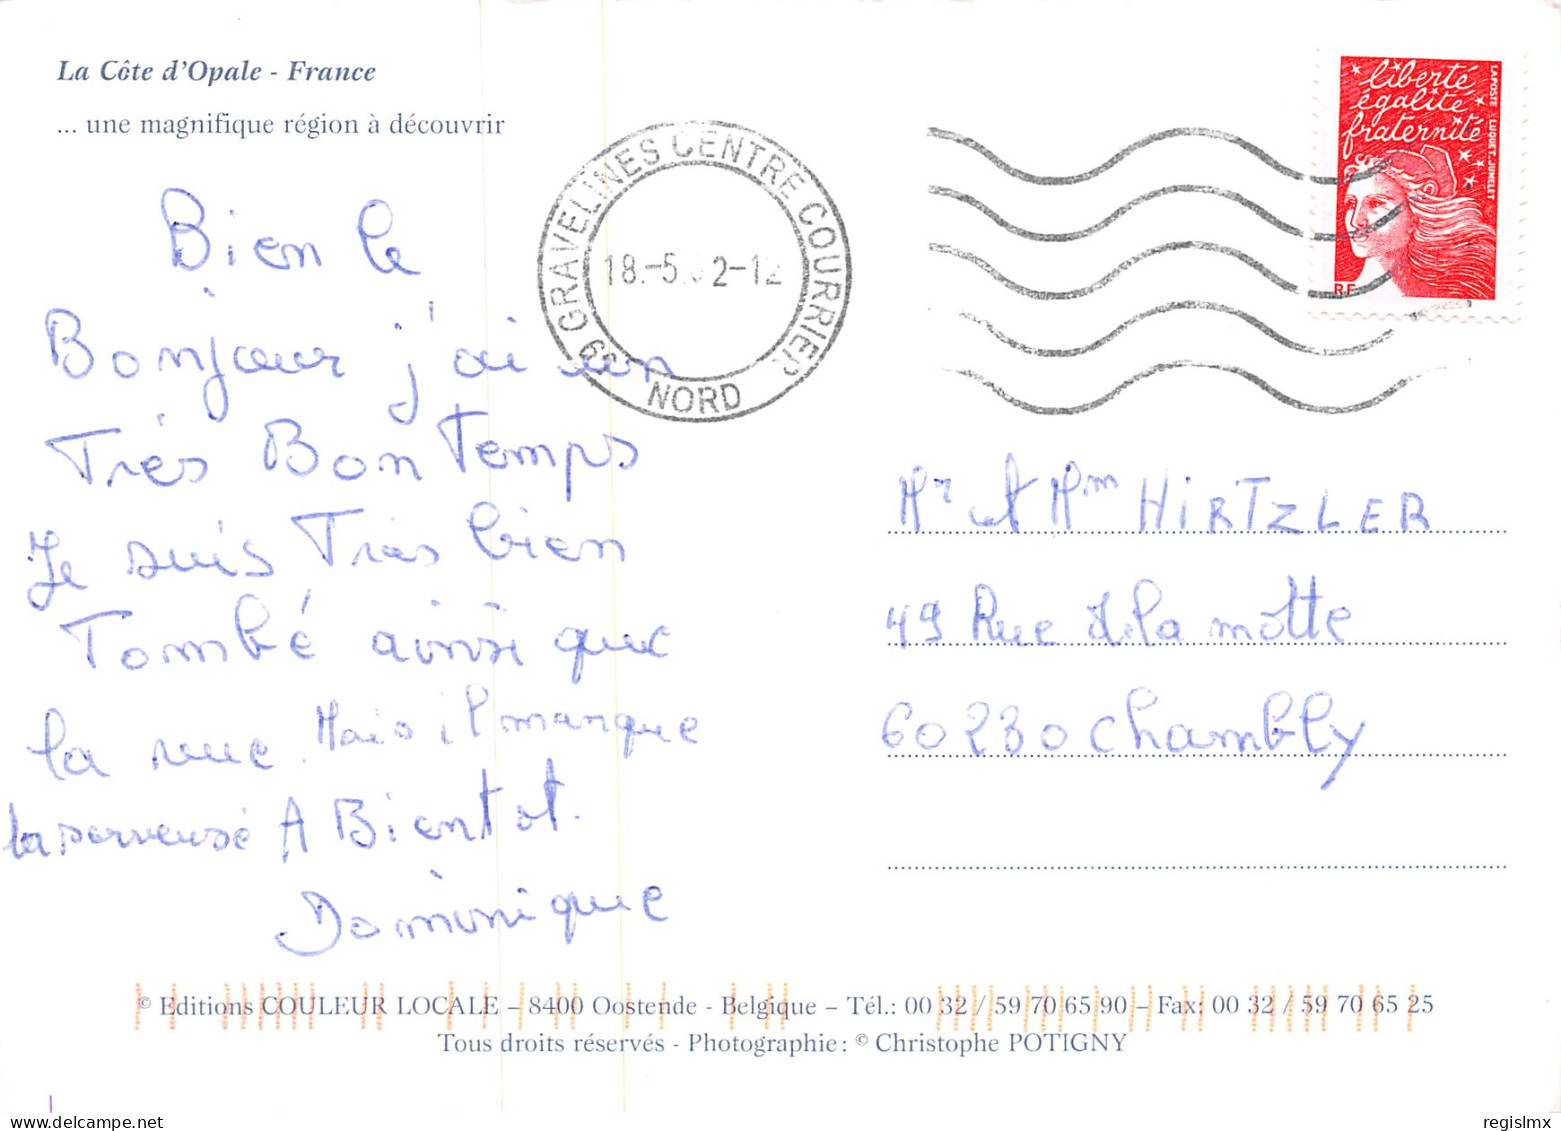 La Côte d'Opale - France
... une magnifique région à découvrir
liberté
égalité
fraternité
LA POSTE LUQUET. JUMELET
RF
GRAVELINES CENTRE COURRIER
18.-5. 2-12
NORD
Bien le
Bonjour j'ai un
Très Bon Temps
Je suis Tres bien
Tombé ainsi que
la rue. Mais il manque
la serveuse A Bientot.
Dominique
Mr et Mm HIRTZLER
49 Rue d la motte
60230 Chambly
© Editions COULEUR LOCALE – 8400 Oostende - Belgique – Tél.: 00 32 / 59 70 65 90 – Fax: 00 32 / 59 70 65 25
Tous droits réservés - Photographie: © Christophe POTIGNY
regislmx